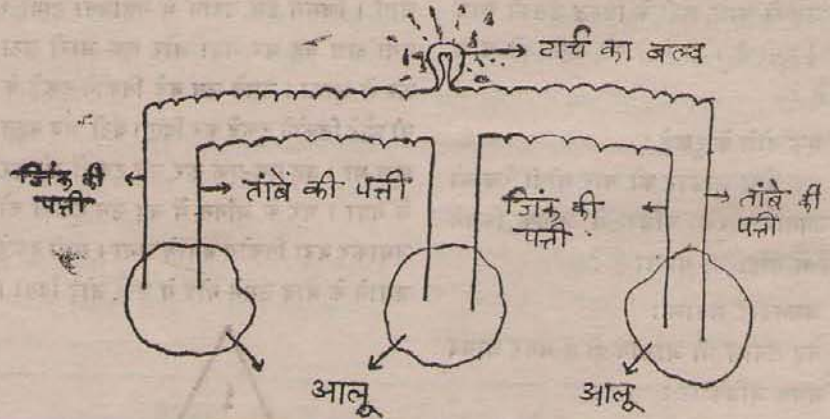 टार्च का बल्व
जिंक की
पत्ती
तांबे की पत्ती
जिंक की
पत्ती
तांबे की
पत्ती
आलू
आलू